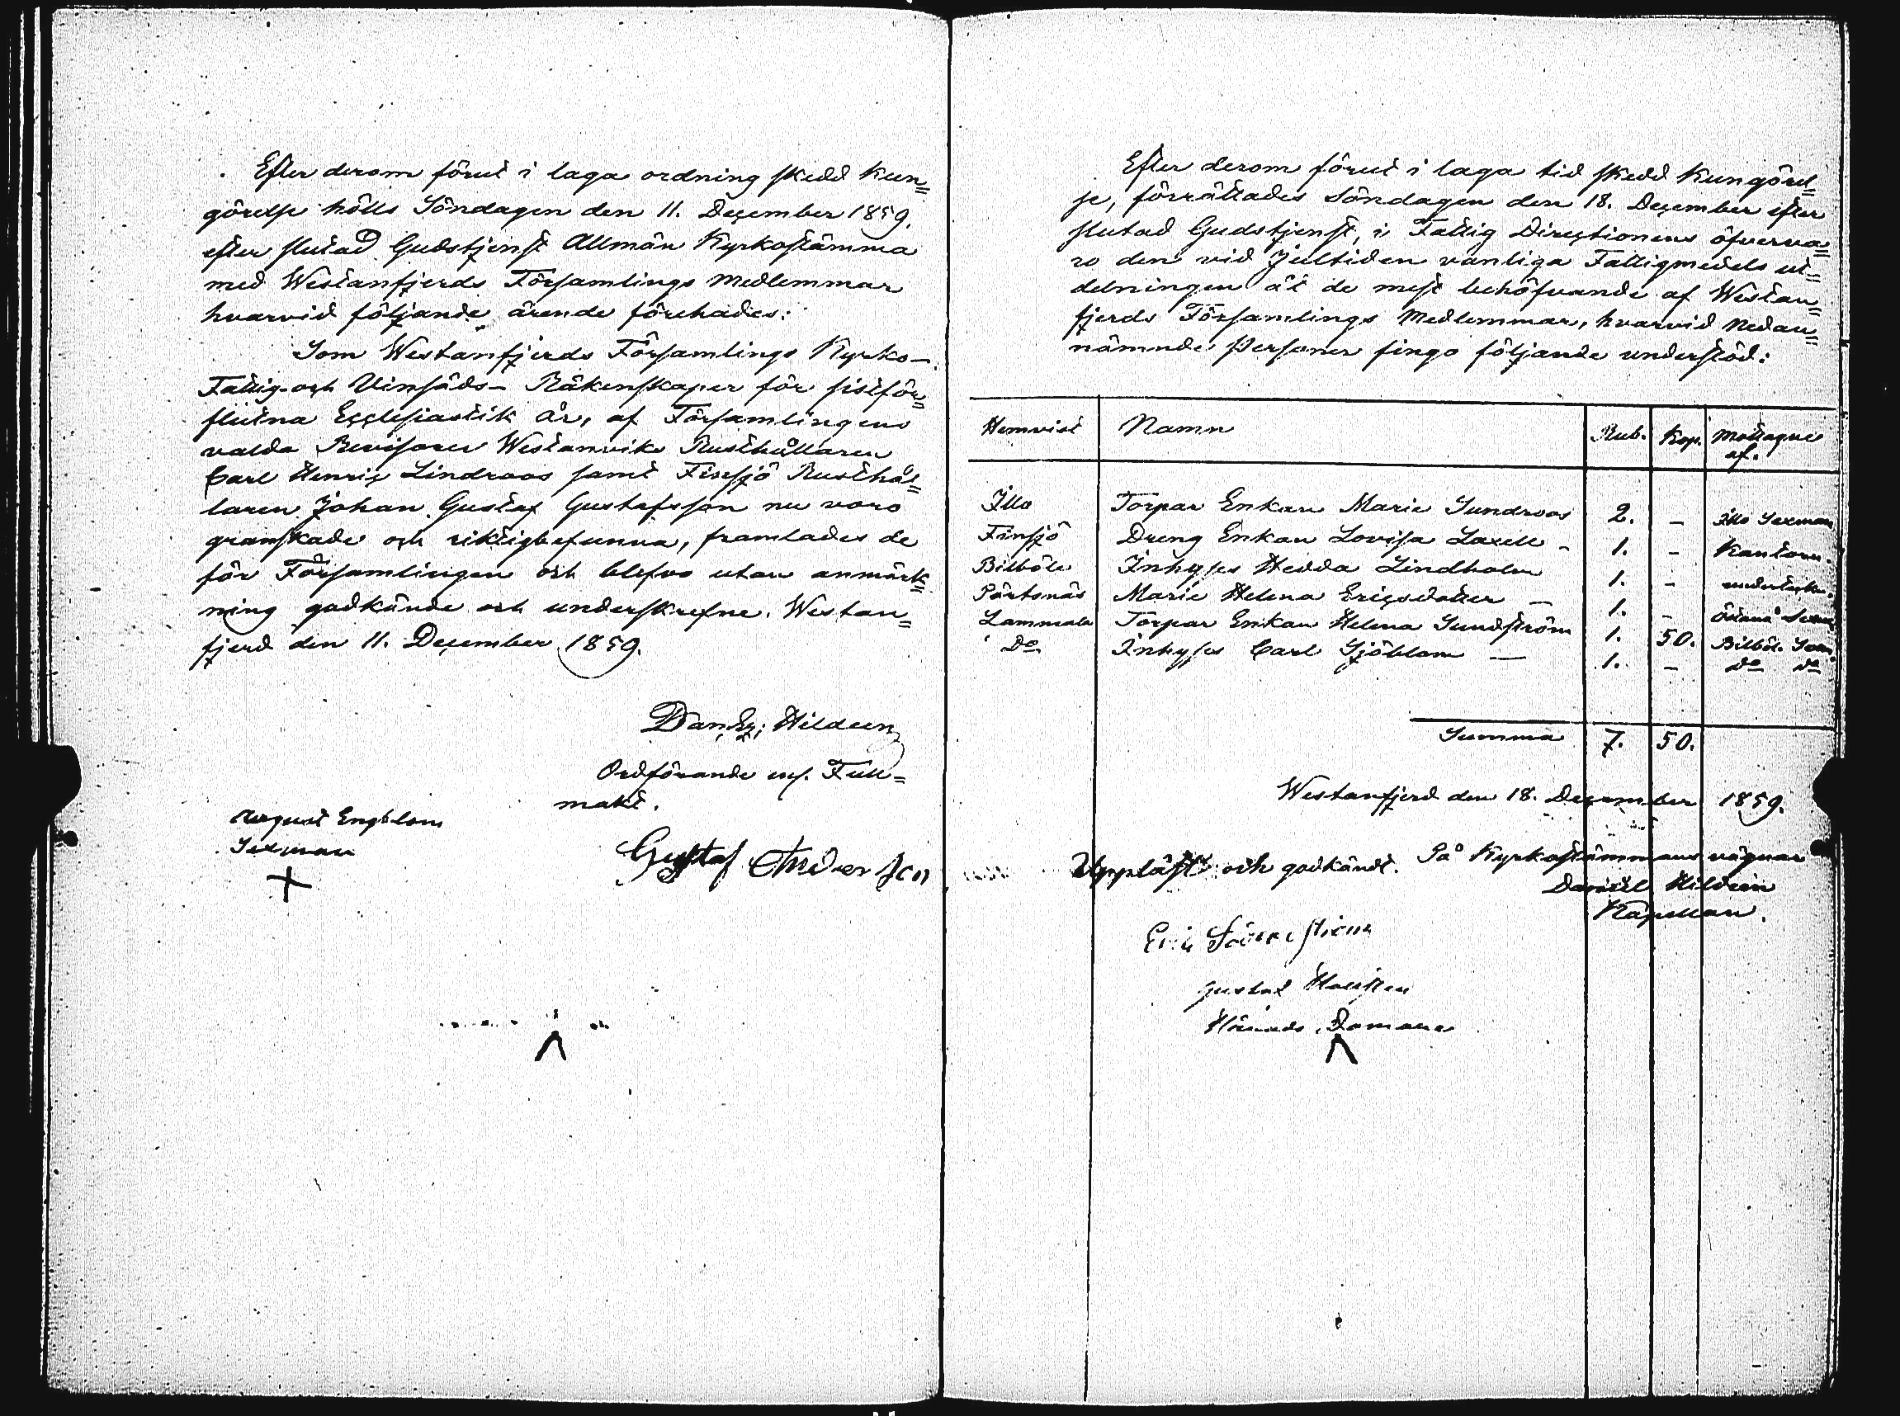 Efter derom förut i laga ordning skedd Kun=
görelse hölls Söndagen den 11. December 1859.
efter slutad Gudstjenst Allmän Kyrkostämma
med Westanfjerds Församlings Medlemmar
hvarvid följande ärende förehades:
Som Westanfjerds Församlings Kyrko-
Fattig- och Vinsäds- Räkenskaper för sistför=
flutna Ecclesiastik År, af Församlingens
valda Revisorer Westanviks Rusthållaren
Carl Henric Lindroos samt Finsjö Rusthål=
laren Johan Gustaf Gustafsson nu voro
granskade och riktigbefunna, framlades de
för Församlingen och blefvo utan anmärk=
ning godkände och underskrefne. Westan=
fjerd den 11. December 1859.
Dan. Hildeen
Ordförande enl. Full=
makt.
August Engblom
Sexman
Gustaf Anderson
Efter derom förut i laga tid skedd Kungörel=
se, förrättades Söndagen den 18. December efter
slutad Gudstjenst, i Fattig Directionens öfverva=
ro den vid Jultiden vanliga Fattigmedels ut=
delningen åt de mest behöfvande af Westan=
fjerds Församlings Medlemmar, hvarvid nedan=
nämnde Personer fingo följande understöd:
Hemvist Namn Rub. Kop. Mottagne
af.
Illo Torpar Enkan Marie Sundroos 2. – Illo Sexman
Finsjö Dreng Enkan Lovisa Laxell – 1. – Kantorn.
Bilböle Inhyses Hedda Lindholm 1. –
Pörtsnäs Marie Helena Ericsdotter – 1. –
Lammala Torpar Enkan Helena Sundström 1. 50. Bilböle Sexm.
Do Inhyses Carl Sjöblom – 1. – Do Do
Summa 7. 50.
Westanfjerd den 18. December 1859.
På Kyrkostämmans vägnar
Daniel Hildeen
Kapellan.
Uppläst och godkändt.
Eric Söderström
Gustaf
Härads Domare